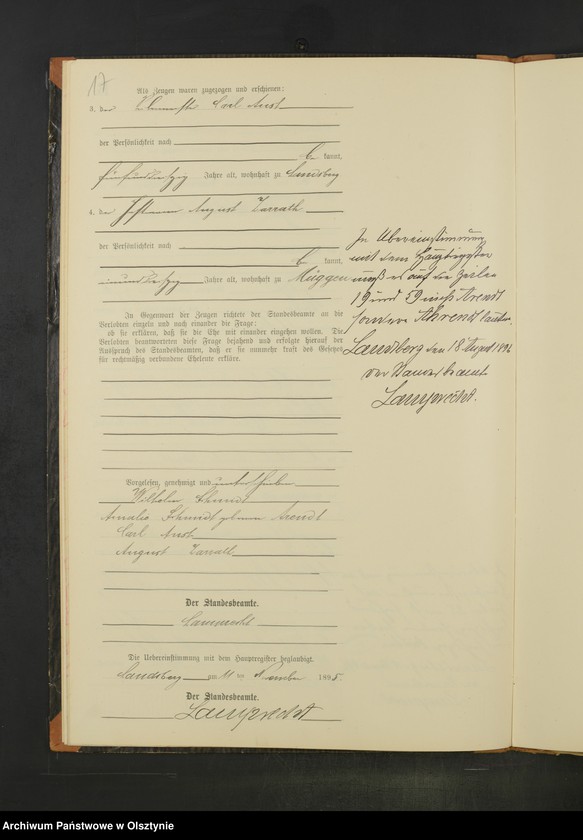 17
Als Zeugen waren zugezogen und erschienen:
3. der Carl Aust
der Persönlichkeit nach
be kannt,
Jahre alt, wohnhaft zu Landsberg
4. der August Tarrath
der Persönlichkeit nach
be kannt,
Jahre alt, wohnhaft zu Müggen
In Gegenwart der Zeugen richtete der Standesbeamte an die
Verlobten einzeln und nach einander die Frage:
ob sie erklären, daß sie die Ehe mit einander eingehen wollen. Die
Verlobten beantworteten diese Frage bejahend und erfolgte hierauf der
Ausspruch des Standesbeamten, daß er sie nunmehr kraft des Gesetzes
für rechtmäßig verbundene Eheleute erkläre.
Vorgelesen, genehmigt und unterschrieben
Wilhelm Schmidt
Amalie Schmidt geborene Arendt
Carl Aust
August Tarrath
Der Standesbeamte.
Lamprecht
Die Uebereinstimmung mit dem Hauptregister beglaubigt.
Landsberg am 11 ten November 1895
Der Standesbeamte.
Lamprecht
In Übereinstimmung
mit dem Hauptregister
muß es auf den Zeilen
19 und 59 nicht Arendt
sondern Ahrendt lauten.
Landsberg den 18 August 1896
Der Standesbeamte
Lamprecht.
Archiwum Państwowe w Olsztynie